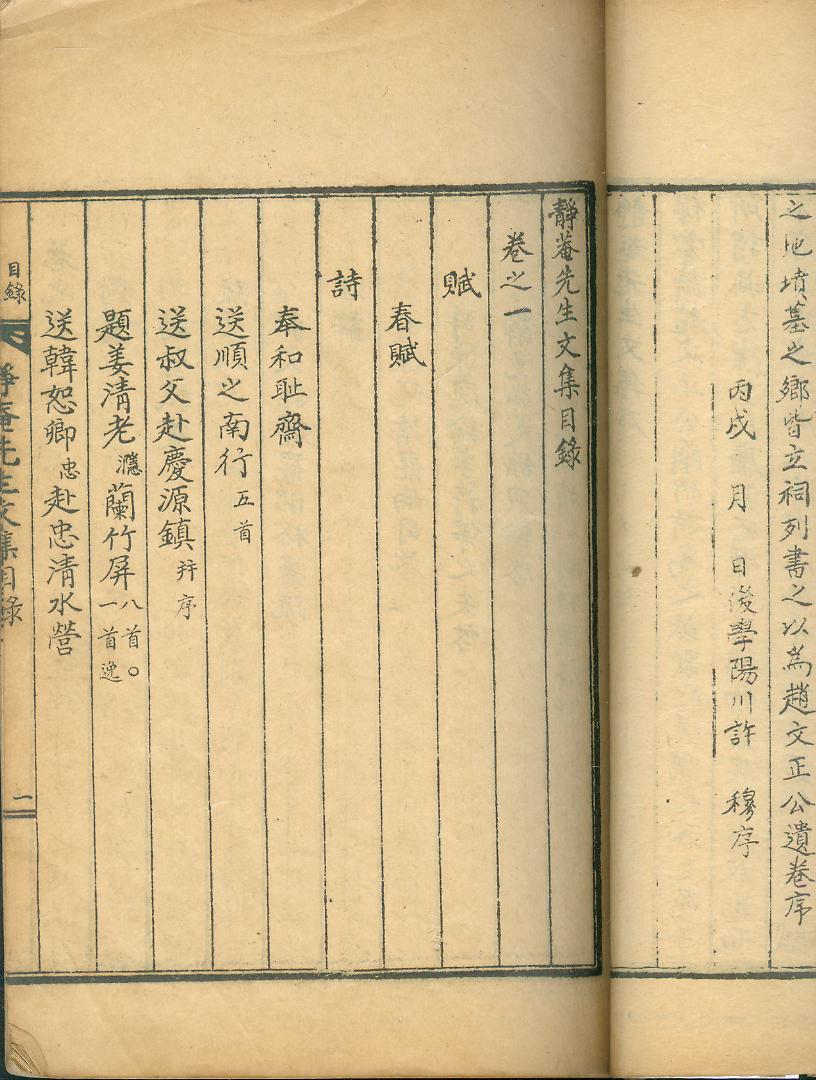 之地墳墓之鄉皆立祠列書之以爲趙文正公遺卷序
丙戌 月 日後學陽川許 穆序
靜菴先生文集目錄
卷之一
賦
春賦
詩
奉和耻齋
送順之南行五首
送叔父赴慶源鎭幷序
題姜清老㶏蘭竹屏八首○一首逸
送韓恕卿忠赴忠清水營
目錄
靜菴先生文集目錄
一